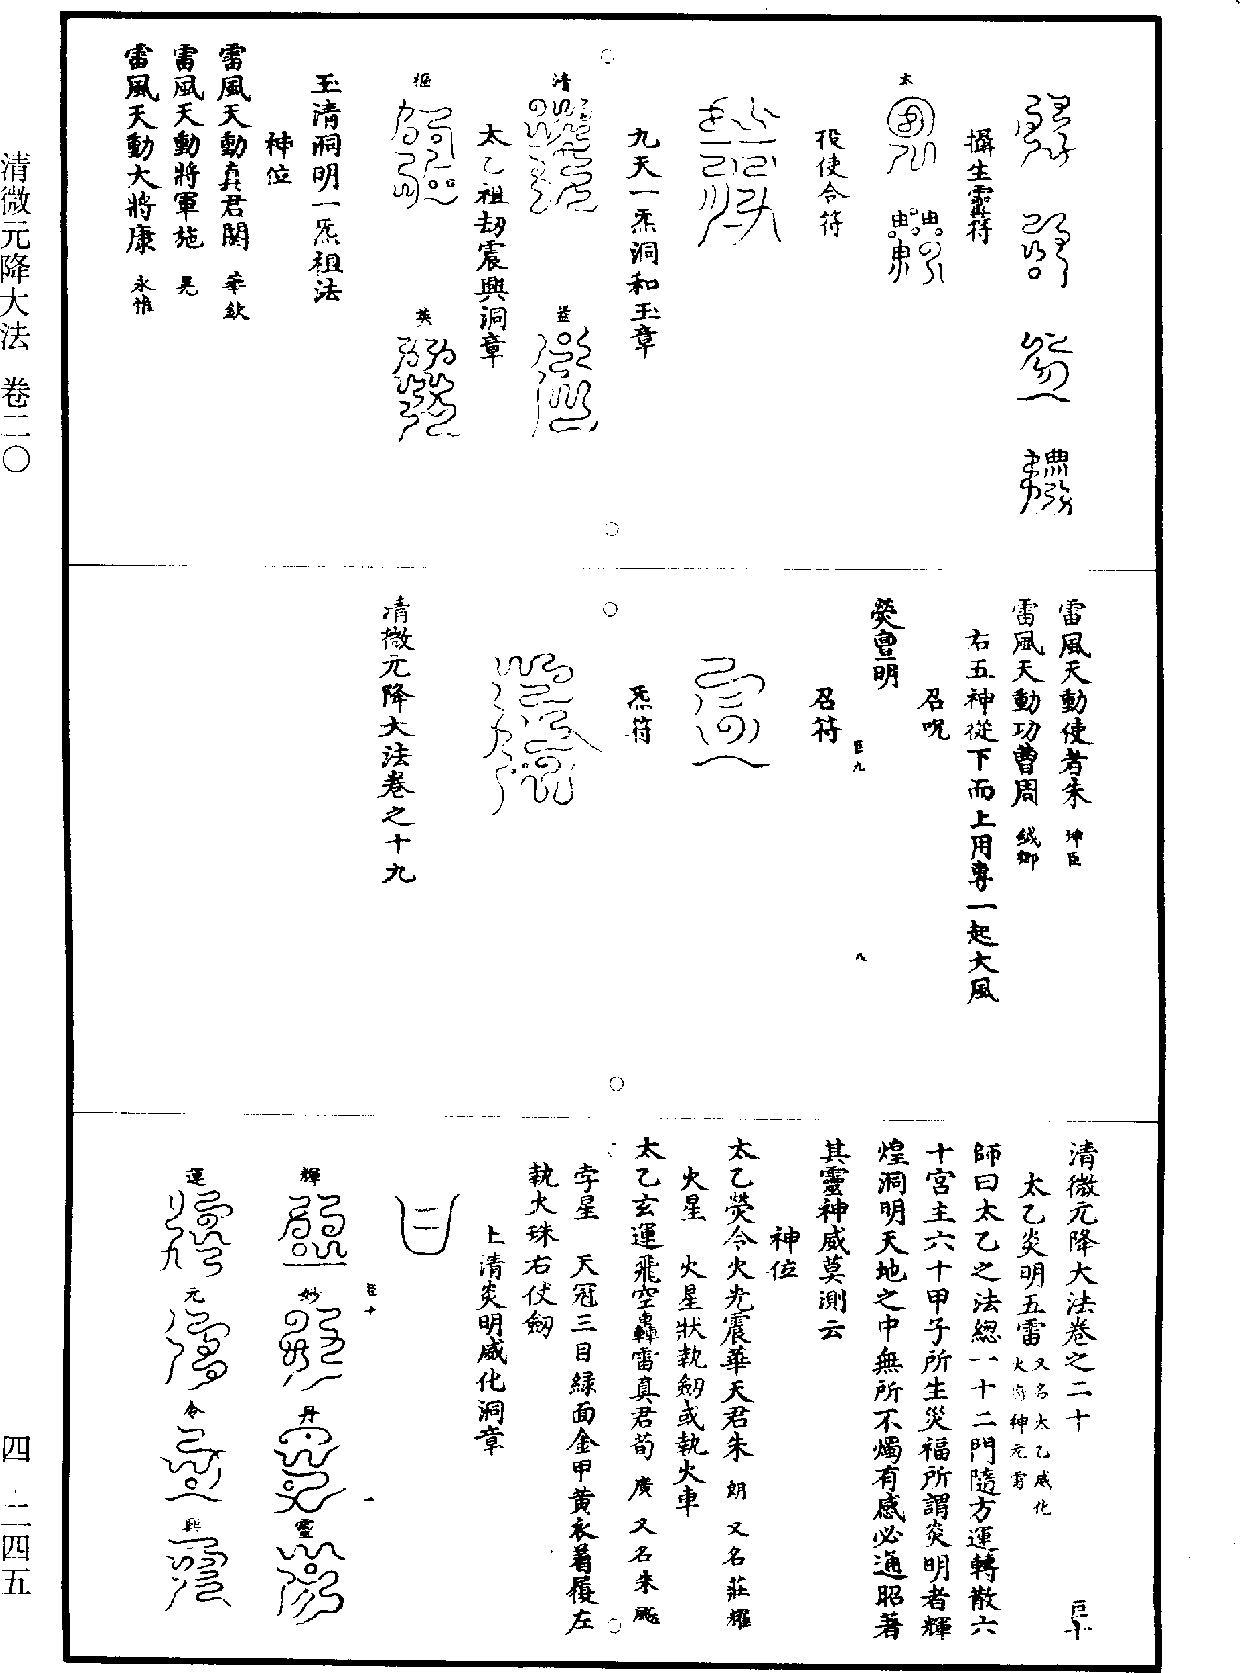 攝生靈符
太
役使合符
九天一炁洞和玉章
清
益
太乙祖劫震興洞章
樞
英
玉清洞明一炁祖法
神位
雷風天動真君關 華欽
雷風天動將軍施 晃
雷風天動大將康 永惟
雷風天動使者朱 坤臣
雷風天動功曹周 鉞卿
右五神從下而上用專一起大風
召呪
熒 明
召符
巨九
八
炁符
清微元降大法卷之十九
清微元降大法卷之二十
巨十
太乙炎明五雷 又名太乙威化
師曰太乙之法總一十二門隨方運轉散六
十宮主六十甲子所生災福所謂炎明者輝
煌洞明天地之中無所不燭有感必通昭著
其靈神威莫測云
神位
太乙熒令火光震華天君朱 朗 又名莊耀
火星 火星狀執劒或執火車
太乙玄運飛空轟雷真君荀 廣 又名朱颷
孛星 天冠三目綠面金甲黃衣着履左
執火珠右仗劒
上清炎明威化洞章
巨十
一
輝
妙
丹
靈
運
元
令
興
清微元降大法 卷二〇
四 二四五